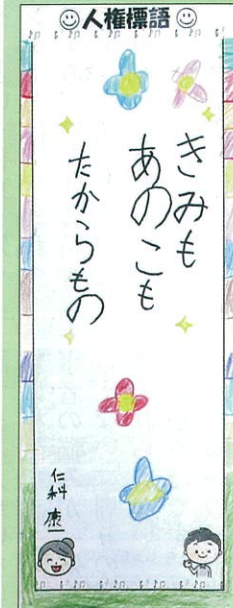 人権標語
きみも
あのこも
たからもの
仁科 康一